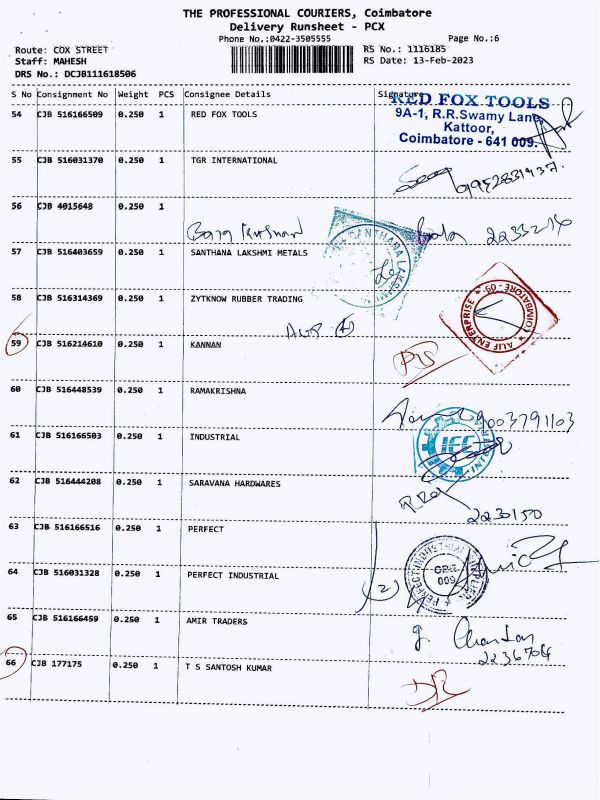 THE PROFESSIONAL COURIERS, Coimbatore
Delivery Runsheet - PCX
Phone No.:0422-3505555 Page No.:6
Route: COX STREET RS No.: 1116185
Staff: MAHESH RS Date: 13-Feb-2023
DRS No.: DCJB111618506
S No Consignment No Weight PCS Consignee Details Signature
RED FOX TOOLS
9A-1, R.R.Swamy Lane,
Kattoor,
Coimbatore - 641 009.
54 CJB 516166509 0.250 1 RED FOX TOOLS
55 CJB 516031370 0.250 1 TGR INTERNATIONAL
9952831937.
56 CJB 4015648 0.250 1
Bala 2233216
57 CJB 516403659 0.250 1 SANTHANA LAKSHMI METALS
SANTHANA LAKSHMI
58 CJB 516314369 0.250 1 ZYTKNOW RUBBER TRADING
ALIF ENTERPRISE COIMBATORE - 09
59 CJB 516214610 0.250 1 KANNAN
60 CJB 516448539 0.250 1 RAMAKRISHNA
9003791103
61 CJB 516166503 0.250 1 INDUSTRIAL
IEC
62 CJB 516444208 0.250 1 SARAVANA HARDWARES
2230150
63 CJB 516166516 0.250 1 PERFECT
64 CJB 516031328 0.250 1 PERFECT INDUSTRIAL
(2)
PERFECT INDUSTRIAL
009
65 CJB 516166459 0.250 1 AMIR TRADERS
2236704
66 CJB 177175 0.250 1 T S SANTOSH KUMAR